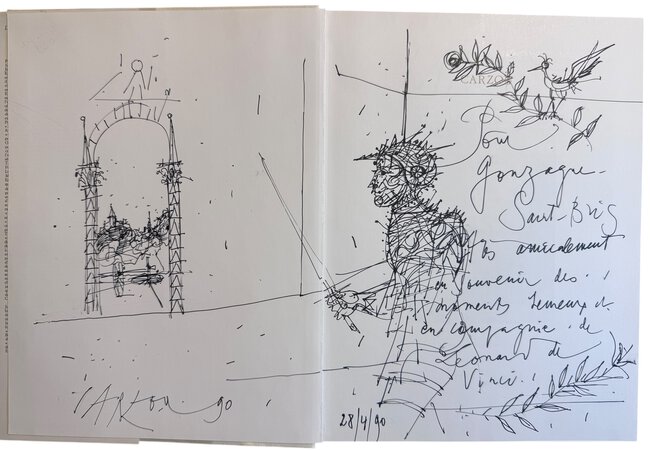 CARZOU 90
CARZOU
Pour
Gonzague
Saint-Bris
très amicalement
en souvenir des
moments heureux et
en compagnie de
Léonard de
Vinci.
28/4/90